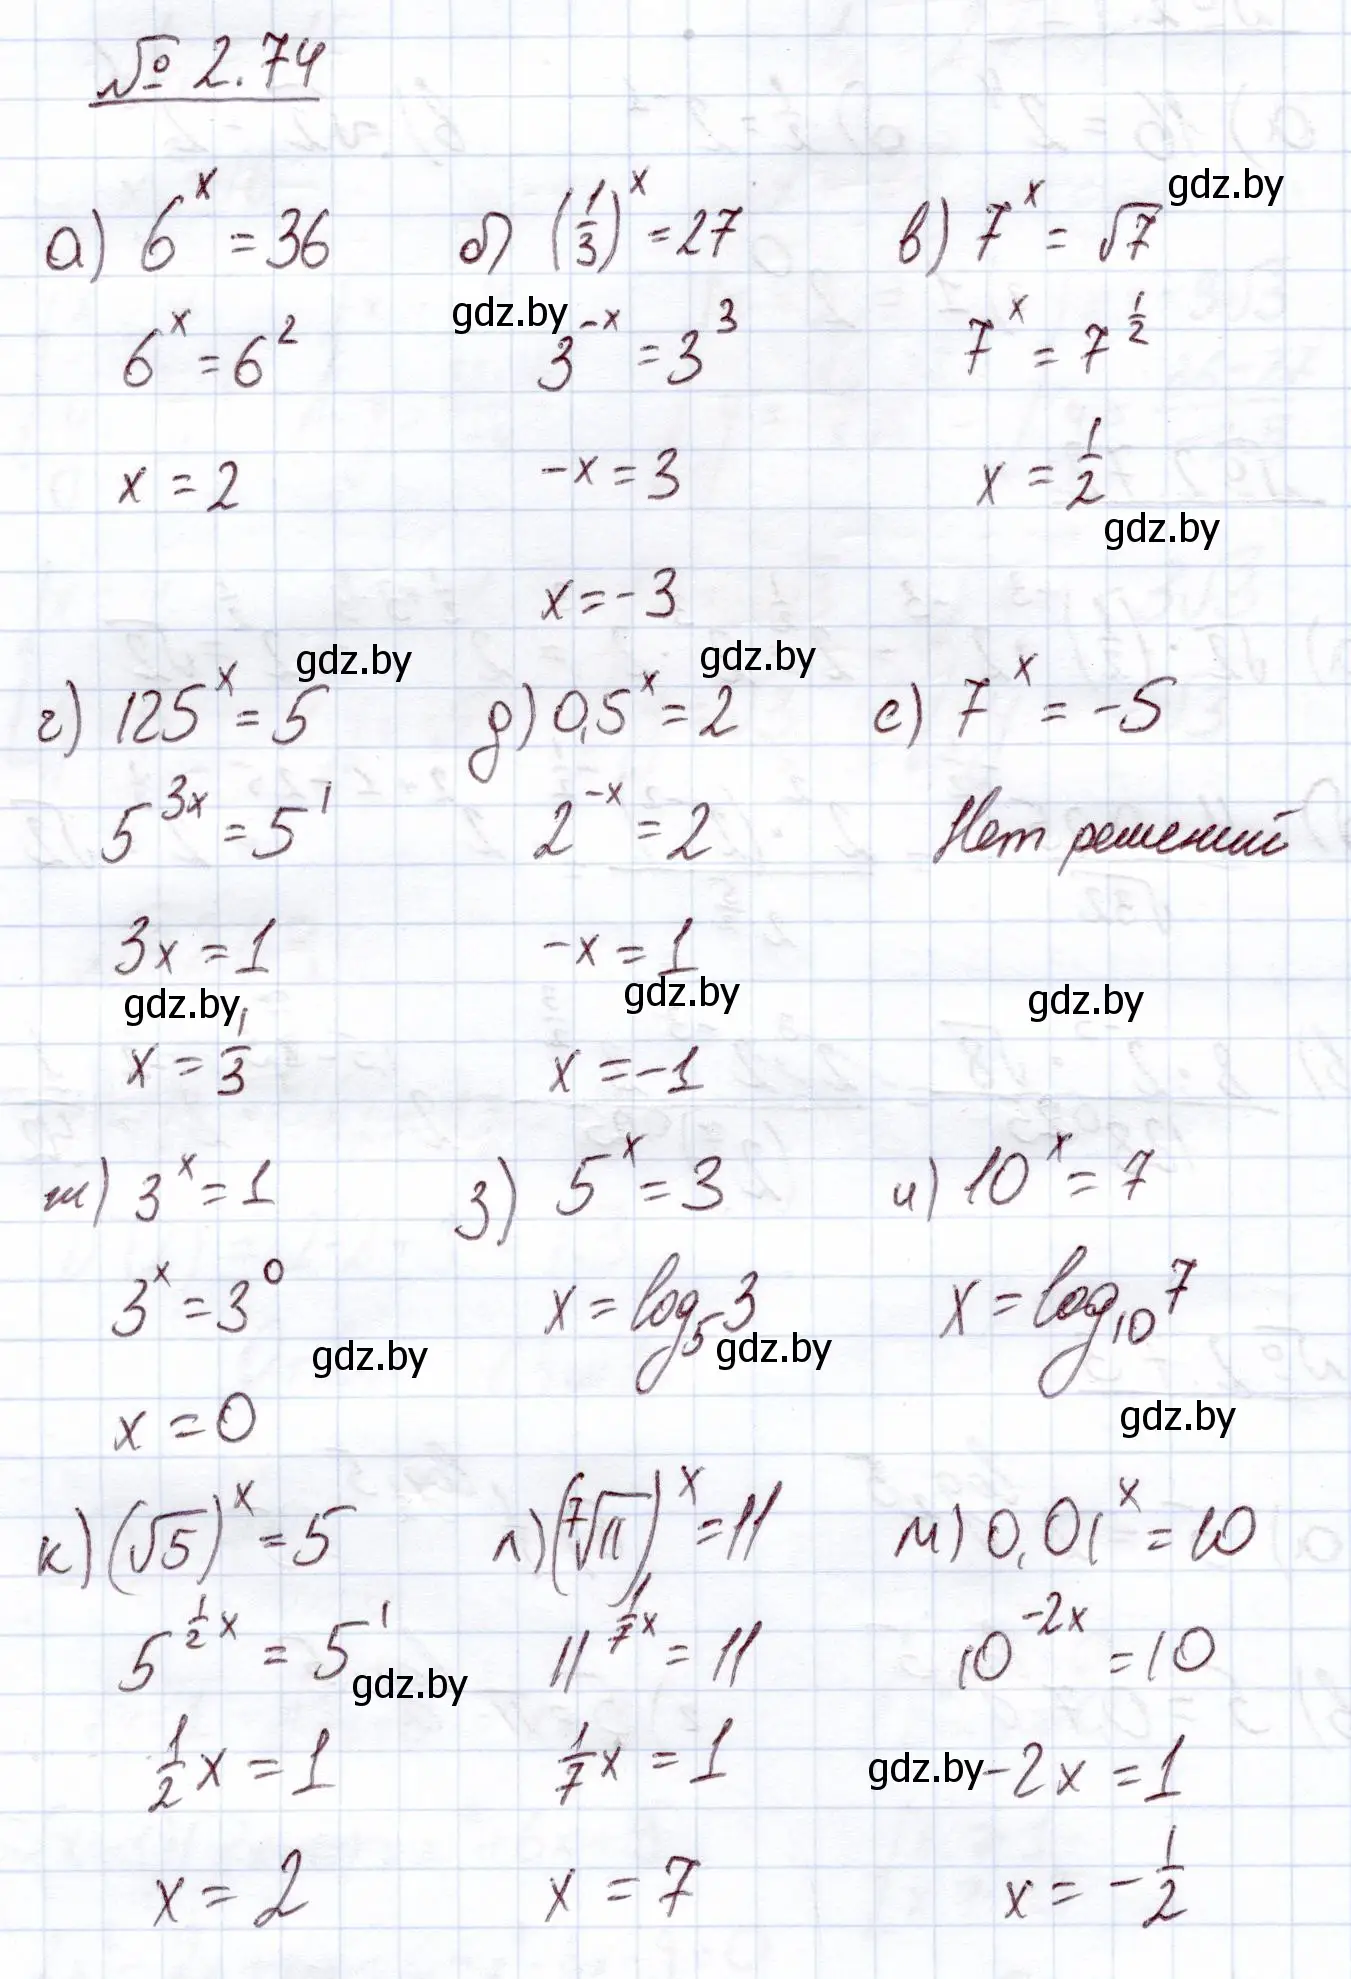 № 2.74
а) 6^x = 36   б) (1/3)^x = 27   в) 7^x = √7
gdz.by
6^x = 6^2   gdz.by   3^(-x) = 3^3   7^x = 7^(1/2)
x = 2   -x = 3   x = 1/2
gdz.by
x = -3
gdz.by   gdz.by
г) 125^x = 5   д) 0,5^x = 2   е) 7^x = -5
5^(3x) = 5^1   2^(-x) = 2   Нет решений
3x = 1   -x = 1
gdz.by   gdz.by   gdz.by
x = 1/3   x = -1
ж) 3^x = 1   з) 5^x = 3   и) 10^x = 7
3^x = 3^0   x = log_5 3   x = log_10 7
gdz.by   gdz.by
x = 0   gdz.by
к) (√5)^x = 5   л) (⁷√11)^x = 11   м) 0,01^x = 10
5^(1/2 x) = 5^1   11^(1/7 x) = 11   10^(-2x) = 10
gdz.by
1/2 x = 1   1/7 x = 1   gdz.by   -2x = 1
x = 2   x = 7   x = -1/2